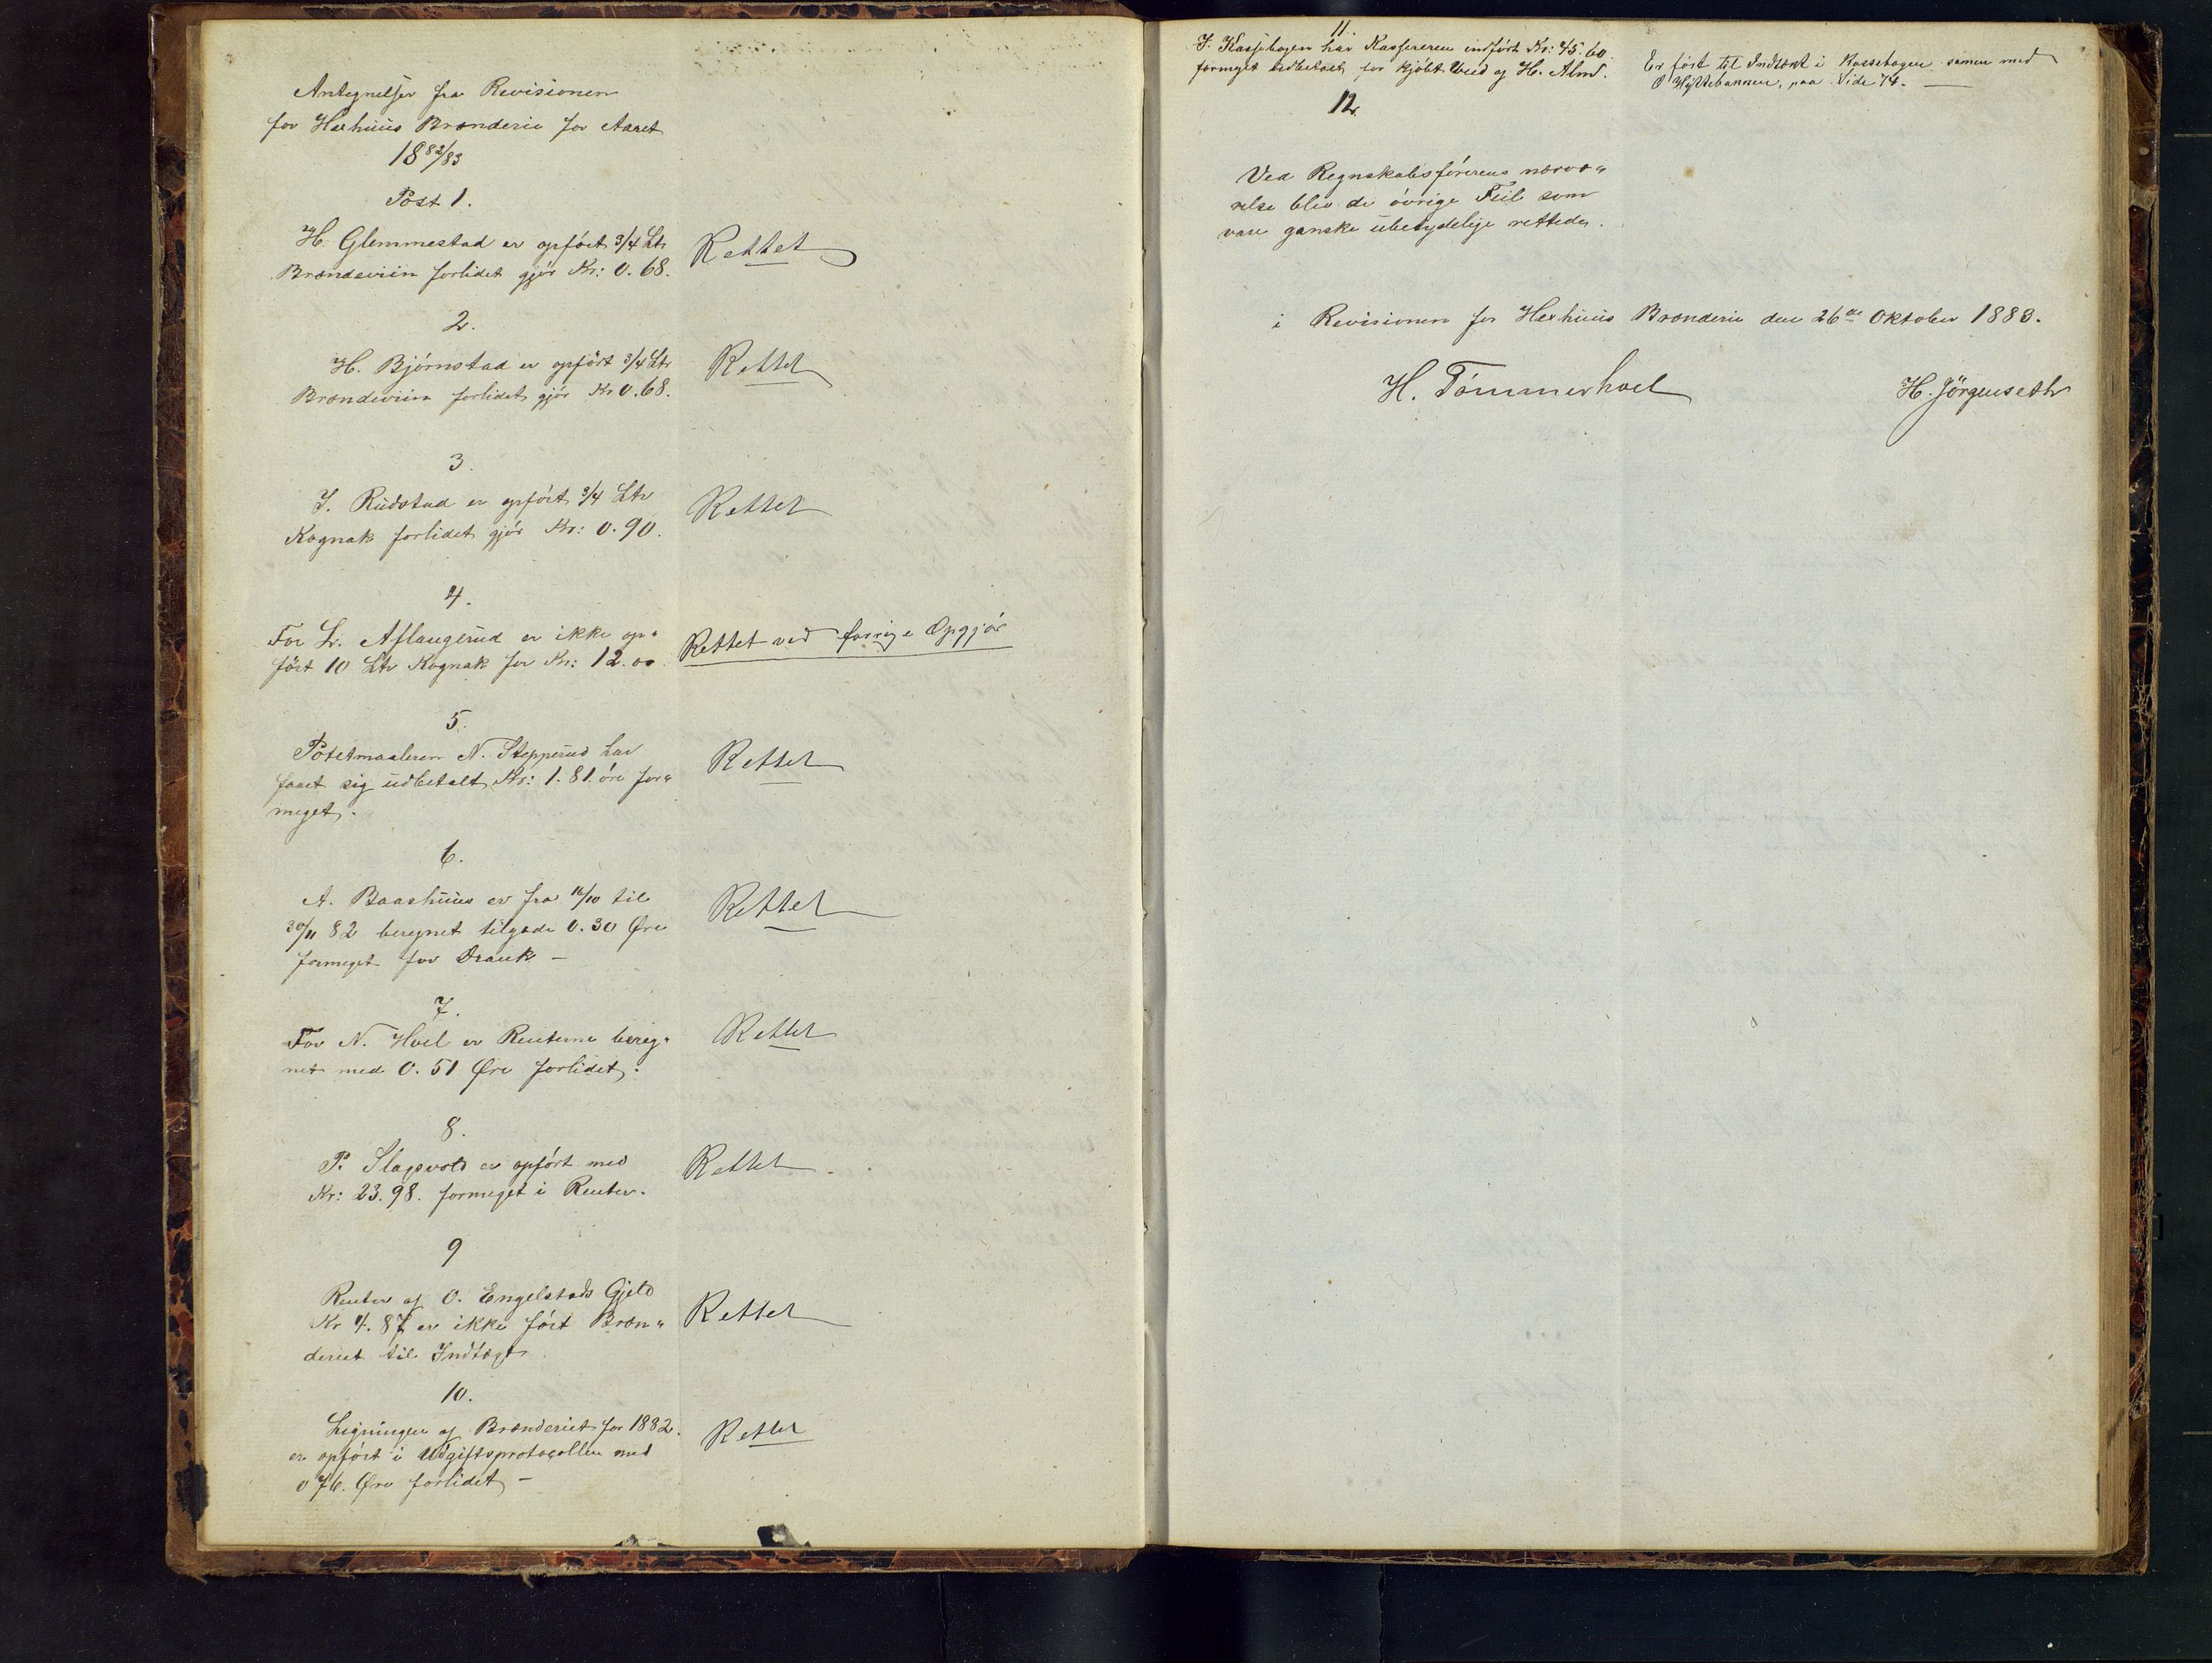 Antegnelser fra Revisionen
for Hexhuus Brænderie for Aaret
18 82/83
Post 1.
H. Glemmestad er opført 3/4 Ltr
Brændeviin forlidet gjør Kr: 0.68.
Rettet
2.
H. Bjørnstad er opført 3/4 Ltr
Brændeviin forlidet gjør Kr 0.68.
Rettet
3.
J. Rudstad er opført 3/4 Ltr
Kognak forlidet gjør Kr: 0.90.
Rettet
4.
For L. Aslaugerud er ikke op„
ført 10 Ltr Kognak for Kr: 12.00
Rettet ved forrige Opgjør
5.
Potetmaaleren N. Stepperud har
faaet sig udbetalt Kr: 1.81. øre for„
meget.
Rettet
6.
A. Baashuus er fra 16/10 til
30/11 82 beregnet tilgode 0.30 Øre
formeget for Drank –
Rettet
7.
For N. Hoel er Renterne bereg„
net med 0.51 Øre forlidet.
Rettet
8.
P. Slagsvold er opført med
Kr: 23.98. formeget i Renter.
Rettet
9
Renter af O. Engelstads Gjeld
Kr 4.87 er ikke ført Bræn„
deriet til Indtægt
Rettet
10.
Ligningen af Brænderiet for 1882.
er opført i Udgiftsprotocollen med
0 76. Øre forlidet –
Rettet
11.
I Kassebogen har Kassereren indført Kr: 45.60
formeget udbetalt for kjøbt Veed af H. Alm.
Er ført til Indtækt i Kassebogen samen med
O Hyttebannen, paa Side 74. —
12.
Ved Regnskabsførerens nærvæ„
relse blev de øvrige Feil som
vare ganske ubetydelige rettede.
i Revisionen for Hexhuus Brænderie den 26de Oktober 1883.
H. Tømmerhoel
H. Jørgenseth